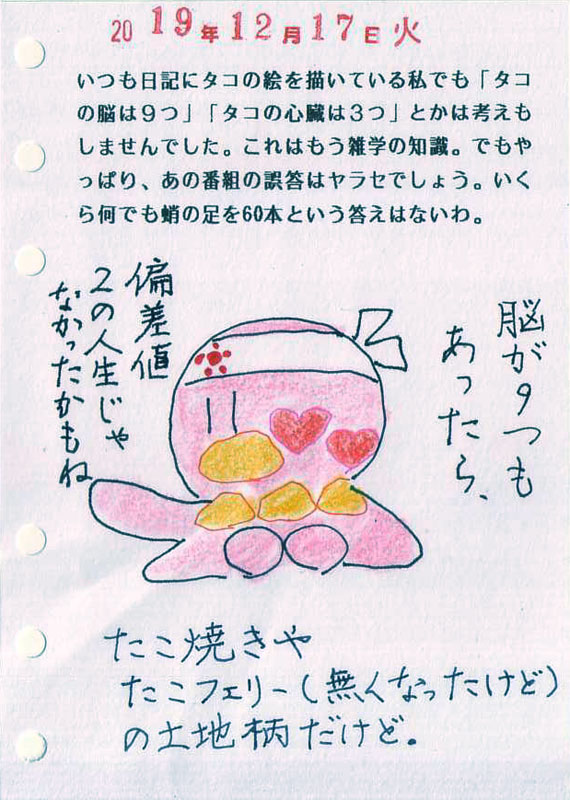 2019年12月17日火
いつも日記にタコの絵を描いている私でも「タコ
の脳は９つ」「タコの心臓は３つ」とかは考えも
しませんでした。これはもう雑学の知識。でもや
っぱり、あの番組の誤答はヤラセでしょう。いく
ら何でも蛸の足を60本という答えはないわ。
脳が９つも
あったら、
偏差値
２の人生じゃ
なかったかもね
たこ焼きや
たこフェリー(無くなったけど)
の土地柄だけど。